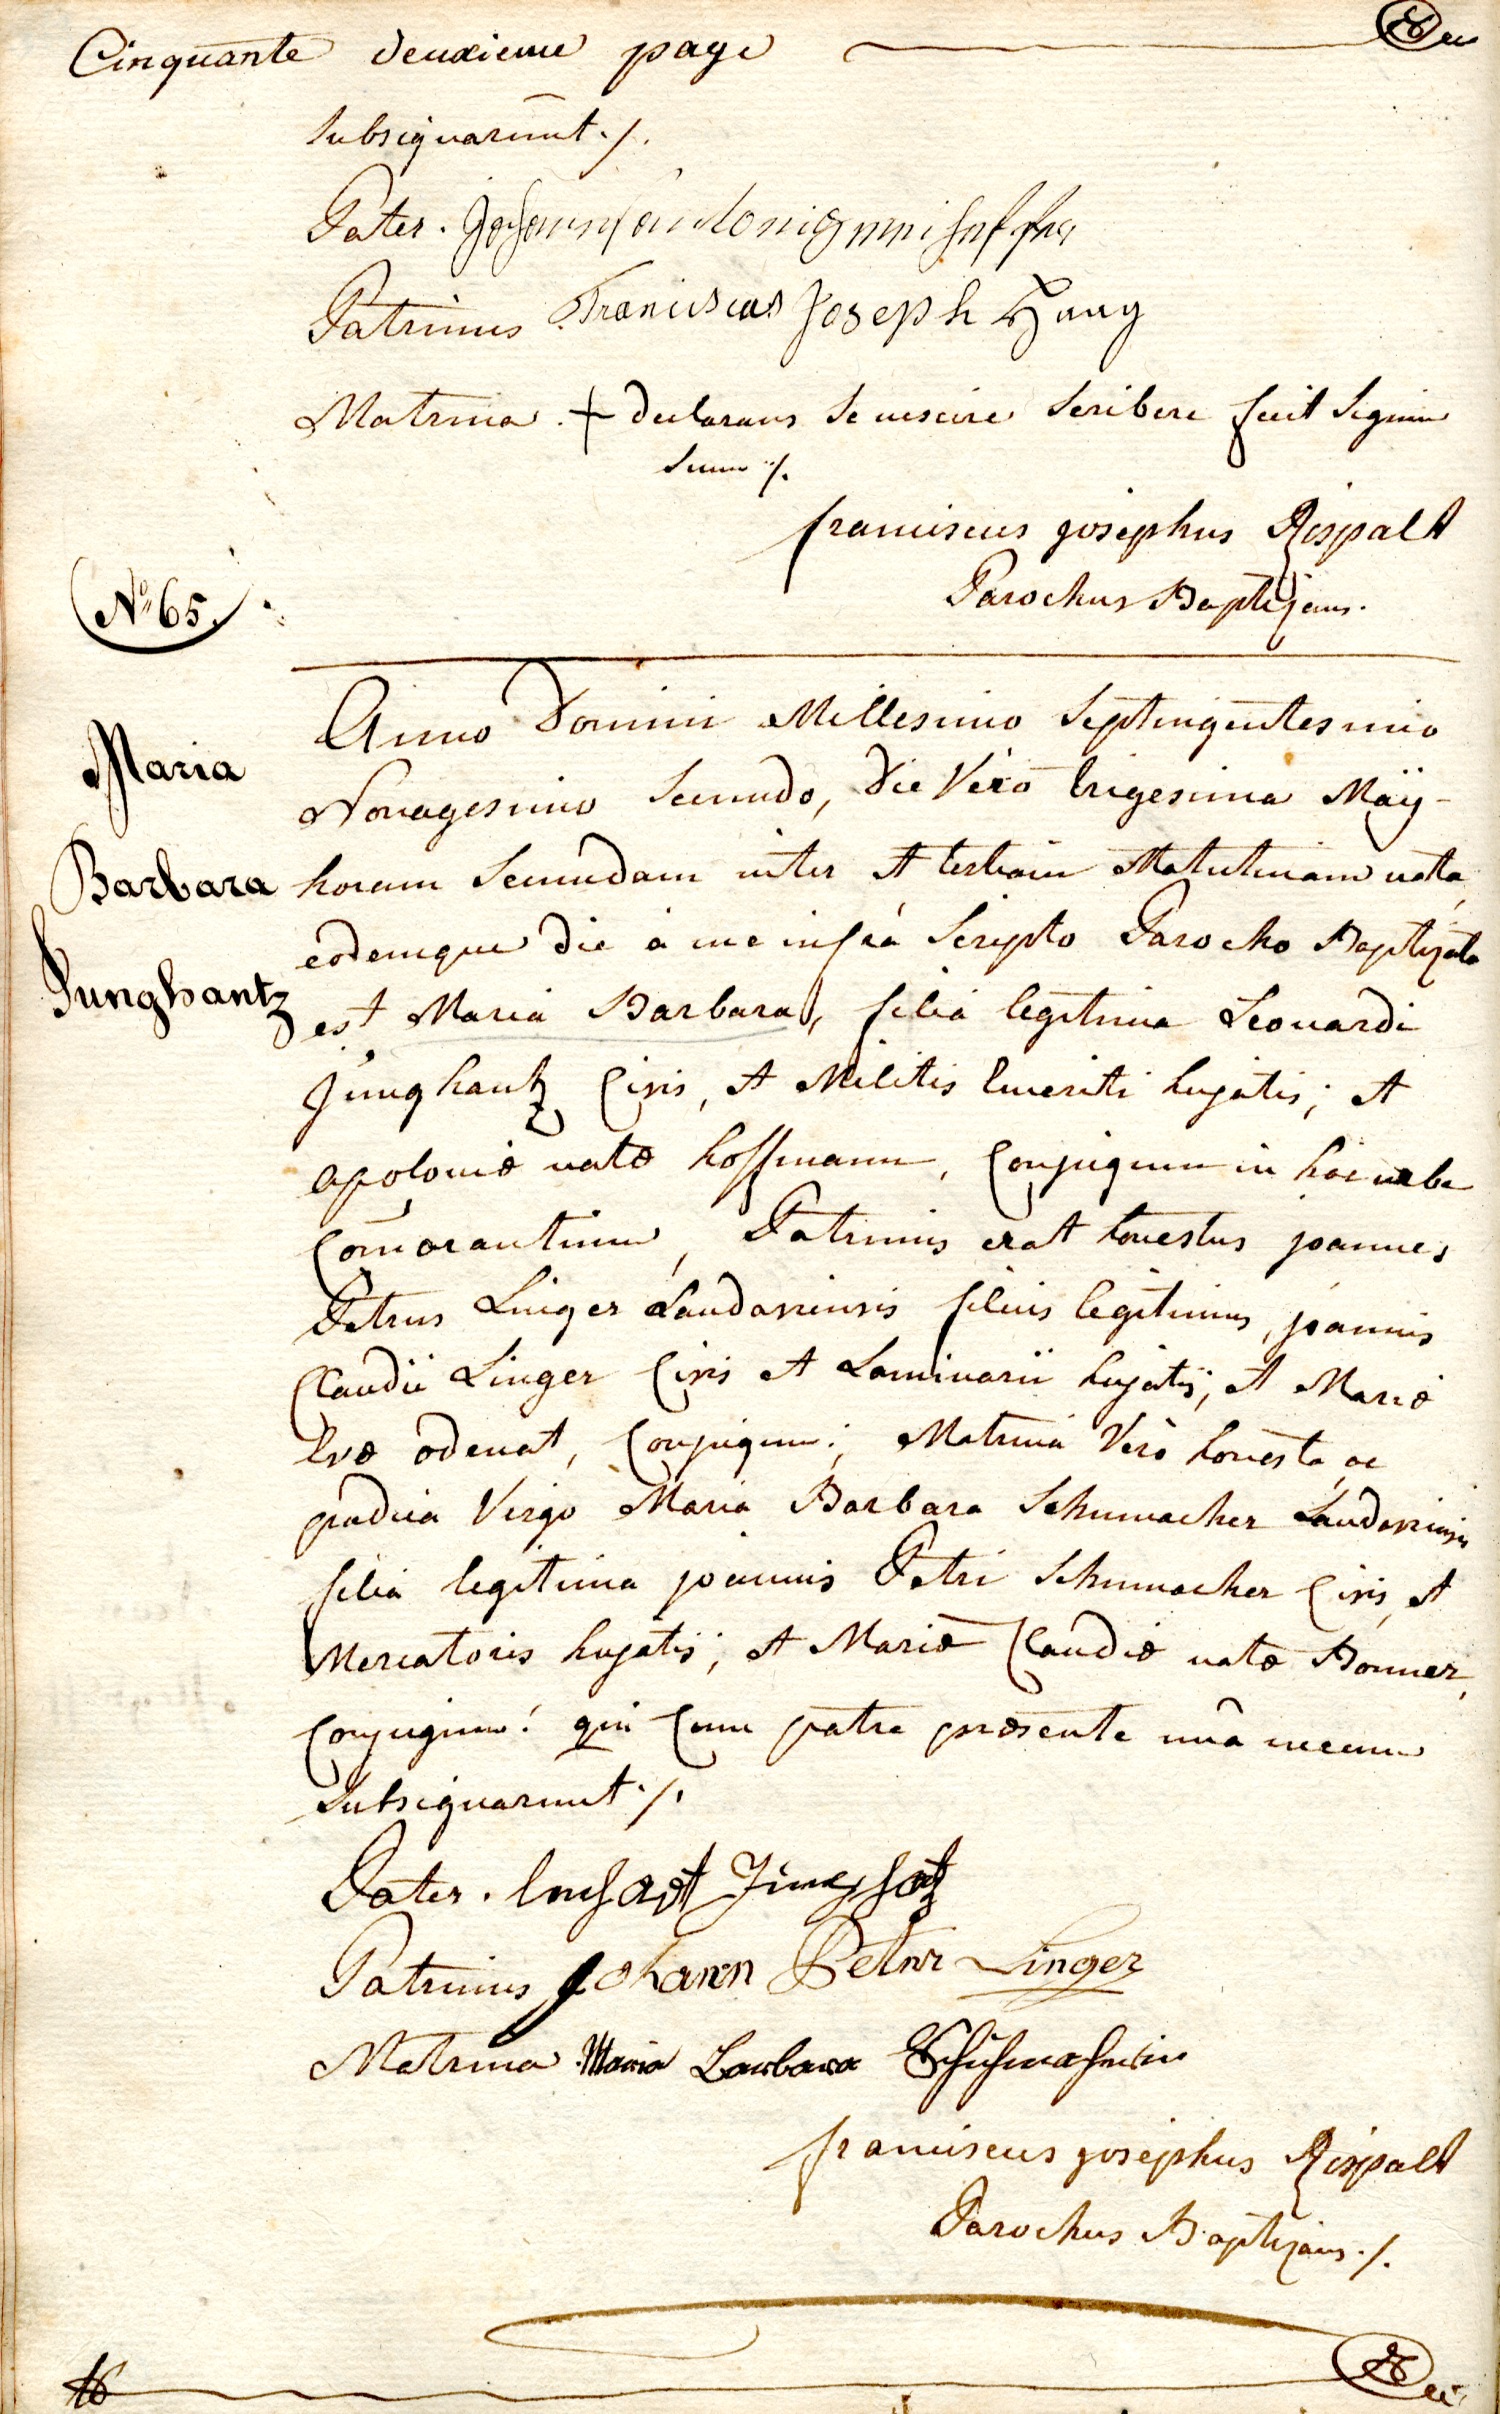 Cinquante deuxieme page
subsignarunt ·/.
Pater ·
Patrinus Franciscus Joseph Haug
Matrina + declarans se nescire scribere fecit signum
suum ·/.
franciscus josephus Rispalt
Parochus Baptizans.
N.º 65.
Maria
Barbara
Junghantz
Anno Domini Millesimo Septingentesimo
Nonagesimo Secundo, die Vero trigesima Maÿ
horam Secundam inter et tertiam Matutinam nata,
eodemque die à me infrà Scripto Parocho Baptizata
est Maria Barbara, filia legitima Leonardi
Junghantz Civis, et Militis Emeriti hujatis; et
apoloniæ natæ hoffmann, Conjugum in hac urbe
Com̄orantium, Patrinus erat honestus joannes
Petrus Linger Landaviensis filius legitimus, joannis
Claudii Linger Civis et Laminarii hujatis; et Mariæ
Evæ odenat, Conjugum; Matrina Verò honesta, ac
pudica Virgo Maria Barbara Schumacher Landaviensis
filia legitima joannis Petri Schumacher Civis, et
Mercatoris hujatis; et Mariæ Claudiæ natæ Bonner,
Conjugum! qui Cum patre præsente unâ mecum
Subsignarunt ·/.
Pater · Junghantz
Patrinus Johann Peter Linger
Matrina Maria Barbara Schuhmacherin
franciscus josephus Rispalt
Parochus Baptizans ·/.